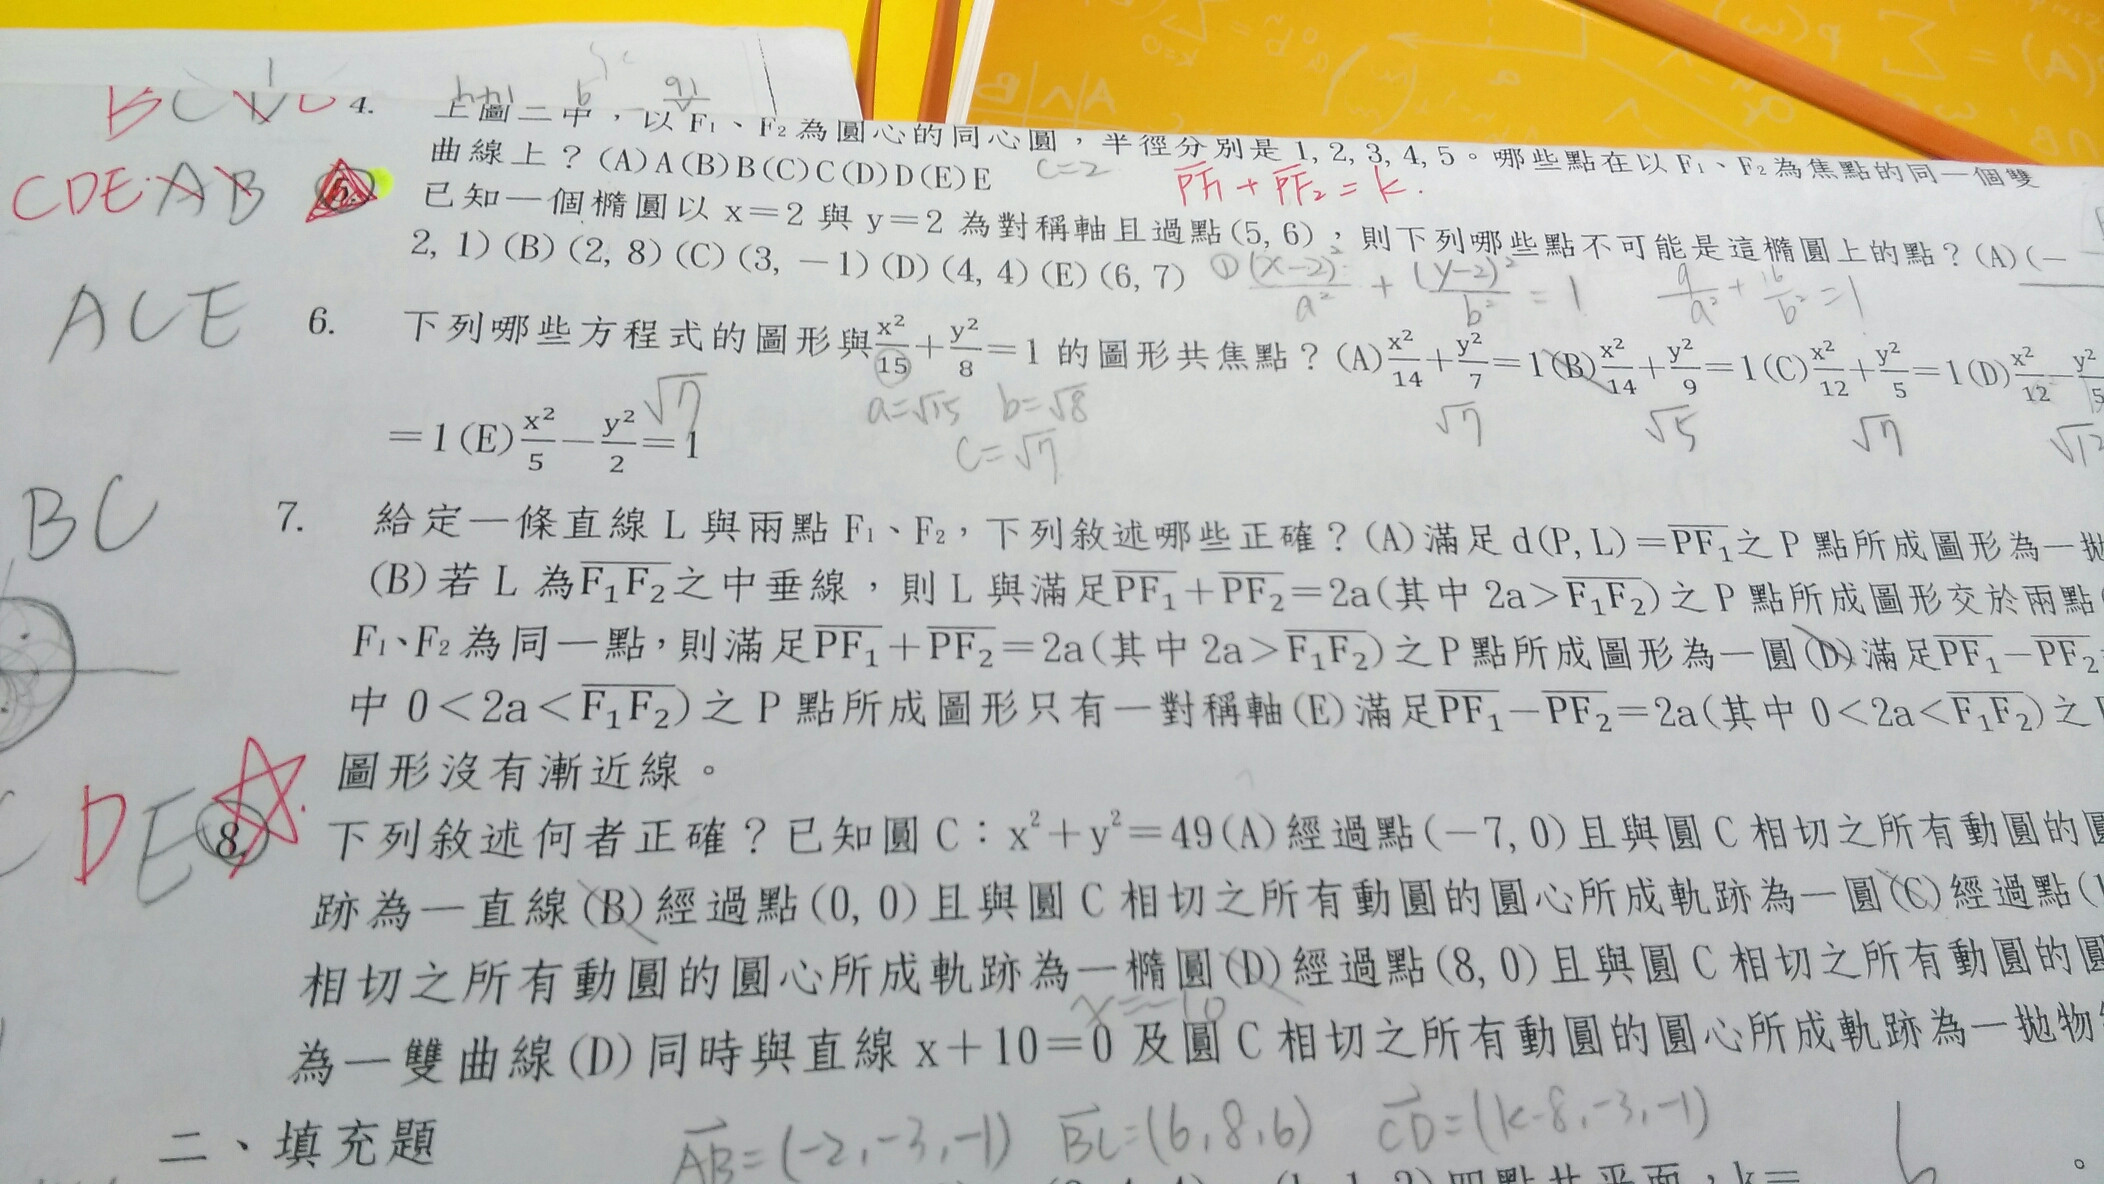 4. 上圖二中，以 F₁、F₂ 為圓心的同心圓，半徑分別是 1, 2, 3, 4, 5。哪些點在以 F₁、F₂ 為焦點的同一個雙
曲線上？(A) A (B) B (C) C (D) D (E) E c=2
PF₁ + PF₂ = k.
CDE AB 5. 已知一個橢圓以 x＝2 與 y＝2 為對稱軸且過點(5, 6)，則下列哪些點不可能是這橢圓上的點？(A) (－
2, 1) (B) (2, 8) (C) (3, －1) (D) (4, 4) (E) (6, 7) ① (x-2)²/a² + (y-2)²/b² = 1 9/a² + 16/b² = 1
ACE 6. 下列哪些方程式的圖形與 x²/15＋y²/8＝1 的圖形共焦點？(A) x²/14＋y²/7＝1 (B) x²/14＋y²/9＝1 (C) x²/12＋y²/5＝1 (D) x²/12－y²/5
a=√15 b=√8 √7 √5 √7
＝1 (E) x²/5－y²/2＝1 √7
c=√7
BC 7. 給定一條直線 L 與兩點 F₁、F₂，下列敘述哪些正確？(A) 滿足 d(P, L)＝PF₁ 之 P 點所成圖形為一拋
(B) 若 L 為 F₁F₂ 之中垂線，則 L 與滿足 PF₁＋PF₂＝2a (其中 2a＞F₁F₂) 之 P 點所成圖形交於兩點(
F₁、F₂ 為同一點，則滿足 PF₁＋PF₂＝2a (其中 2a＞F₁F₂) 之 P 點所成圖形為一圓 (D) 滿足 PF₁－PF₂
中 0＜2a＜F₁F₂) 之 P 點所成圖形只有一對稱軸 (E) 滿足 PF₁－PF₂＝2a (其中 0＜2a＜F₁F₂) 之
圖形沒有漸近線。
DE 8. 下列敘述何者正確？已知圓 C：x²＋y²＝49 (A) 經過點(－7, 0)且與圓 C 相切之所有動圓的圓
跡為一直線 (B) 經過點(0, 0)且與圓 C 相切之所有動圓的圓心所成軌跡為一圓 (C) 經過點(1
相切之所有動圓的圓心所成軌跡為一橢圓 (D) 經過點(8, 0)且與圓 C 相切之所有動圓的圓
x=-10
為一雙曲線 (D) 同時與直線 x＋10＝0 及圓 C 相切之所有動圓的圓心所成軌跡為一拋物
AB=(-2,-3,-1) BC=(6,8,6) CD=(k-8,-3,-1)
二、填充題
四點共平面，k＝